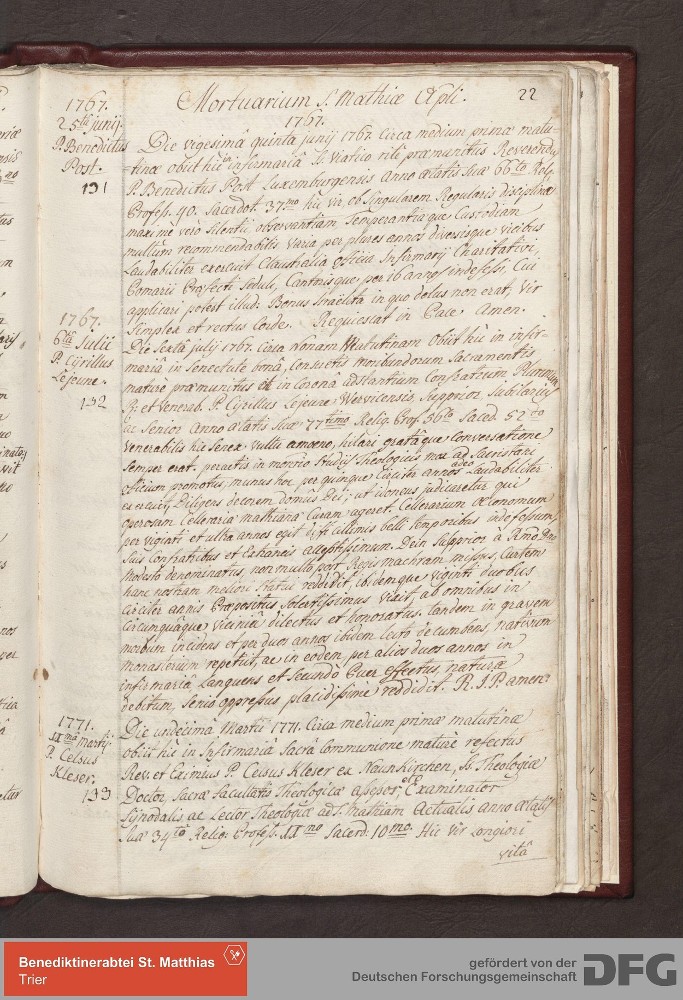 Mortuarium S. Mathiæ Apli.
22
1767.
1767.
25ta junij
P. Benedictus
Post.
191
Die vigesimâ quintâ junij 1767. circa medium primæ matu-
tinæ obiit hic in infirmariâ Ss. viatico ritè præmunitus Reverendus
P. Benedictus Post Luxemburgensis anno ætatis suæ 66to. Relig.
Profess. 40. Sacerdot. 37mo hic vir ob singularem Regularis disciplinæ
maximè verò silentii observantiam Temperantiæque Custodiam
multùm recommendabilis varia per plures annos diversisque vicibus
laudabiliter exercuit Claustralia officia Infirmarij Charitativi,
Pomarii Præfecti seduli, Cantorisque per 16 annos indefessi, Cui
applicari potest illud: Bonus Israelita in quo dolus non erat, vir
simplex et rectus Corde. Requiescat in Pace Amen.
1767.
6ta Julii
P. Cyrillus
Lejeune.
192
Die Sextâ julij 1767. circa nonam Matutinam Obiit hic in infir-
mariâ in senectute bonâ, Consuetis moribundorum Sacramentis
maturè præmunitus in Coronâ adstantium Confratrum Plurimum
R. et Venerab. P. Cyrillus Lejeune Vervicensis, Supprior, Jubilarius
ac Senior anno ætatis suæ 77timo Relig. Prof. 56to Sacerd. 52do
Venerabilis hic Senex vultu amoeno, hilari gratâque Conversatione
semper erat. peractis in montio Studijs Theologicis mox ad Sacristani
officium promotus, munus hoc per quinque Circiter annos adeo Laudabiliter
exercuit, Diligens decorem domus Dei, ut idoneus judicaretur qui
operosam Cellerariæ mathianæ Curam ageret. Cellerarium Œconomum
per viginti et ultra annos egit difficillimis belli Temporibus indefessum
suis Confratribus et Extraneis acceptissimum. Dein Supprior à Rmo Dno
Modesto denominatus, non multò post Regismachram missus, Curtem
hanc nostram meliori statui reddidit, ibidemque viginti duobus
circiter annis Præpositus solertissimus vixit, ab omnibus in
circumquâque viciniâ dilectus et honoratus. tandem in gravem
morbum incidens et per duos annos ibidem lecto decumbens, nativum
monasterium repetiit, ac in eodem per alios duos annos in
infirmariâ Languens et secundò Puer effectus, naturæ
debitum, senio oppressus placidissimè reddidit. R. I. P. amen
1771.
11mâ Martij
P. Celsus
Kleser.
193
Die undecimâ Martii 1771. Circa medium primæ matutinæ
obiit hic in Infirmariâ Sacrâ Communione maturè refectus
Rev. et Eximius P. Celsus Kleser ex Naunkirchen, Ss. Theologiæ
Doctor, Sacræ facultatis Theologicæ assessor, et Examinator
Synodalis ac Lector Theologiæ ad S. Mathiam Actualis anno ætatis
suæ 34to Relig. Profess. 11mo Sacerd. 10mo. Hic vir longiori
vitâ
Benediktinerabtei St. Matthias
Trier
gefördert von der
Deutschen Forschungsgemeinschaft
DFG